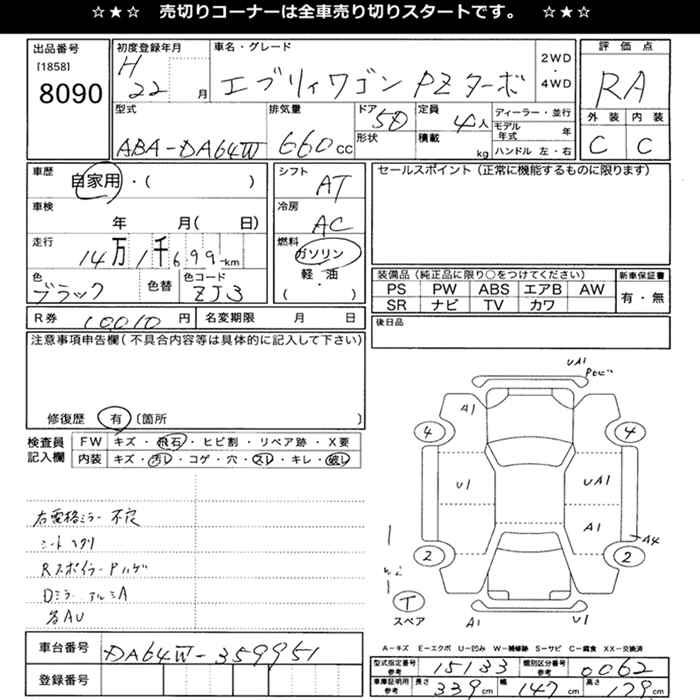 ☆★☆ 売切りコーナーは全車売り切りスタートです。 ☆★☆
出品番号
[1858]
8090
初度登録年月
H
22 月
車名・グレード
エブリィワゴン PZターボ
2WD
・
4WD
評価点
RA
外装 内装
C C
型式
ABA-DA64W
排気量
660cc
ドア
5D
形状
定員
4人
積載
kg
ディーラー・並行
モデル年式 年
ハンドル 左・右
車歴
自家用・( )
車検
年 月( 日)
走行
14万1千699km
色
ブラック
色替
色コード
ZJ3
シフト
AT
冷房
AC
燃料
ガソリン
軽・油
( ・ )
セールスポイント(正常に機能するものに限ります)
装備品(純正品に限り○をつけてください)
PS PW ABS エアB AW
SR ナビ TV カワ
新車保証書
有・無
R券 10010円
名変期限 月 日
後日品
注意事項申告欄(不具合内容等は具体的に記入して下さい)
修復歴 有 〔箇所 〕
検査員
記入欄
FW キズ・飛石・ヒビ割・リペア跡・X要
内装 キズ・汚レ・コゲ・穴・スレ・キレ・破レ
右電格ミラー不良
Rスポイラー Pハゲ
各AU
UA1
A1
4
4
U1
UA1
A1
A4
2
2
T
スペア
A1
U1
A-キズ E-エクボ U-凹み W-補修跡 S-サビ C-腐食 XX-交換済
車台番号 DA64W-359951
登録番号
型式指定番号
参考
15133
類別区分番号
参考
0062
車庫証明用
参考
長さ 339cm 幅 147cm 高さ 79cm